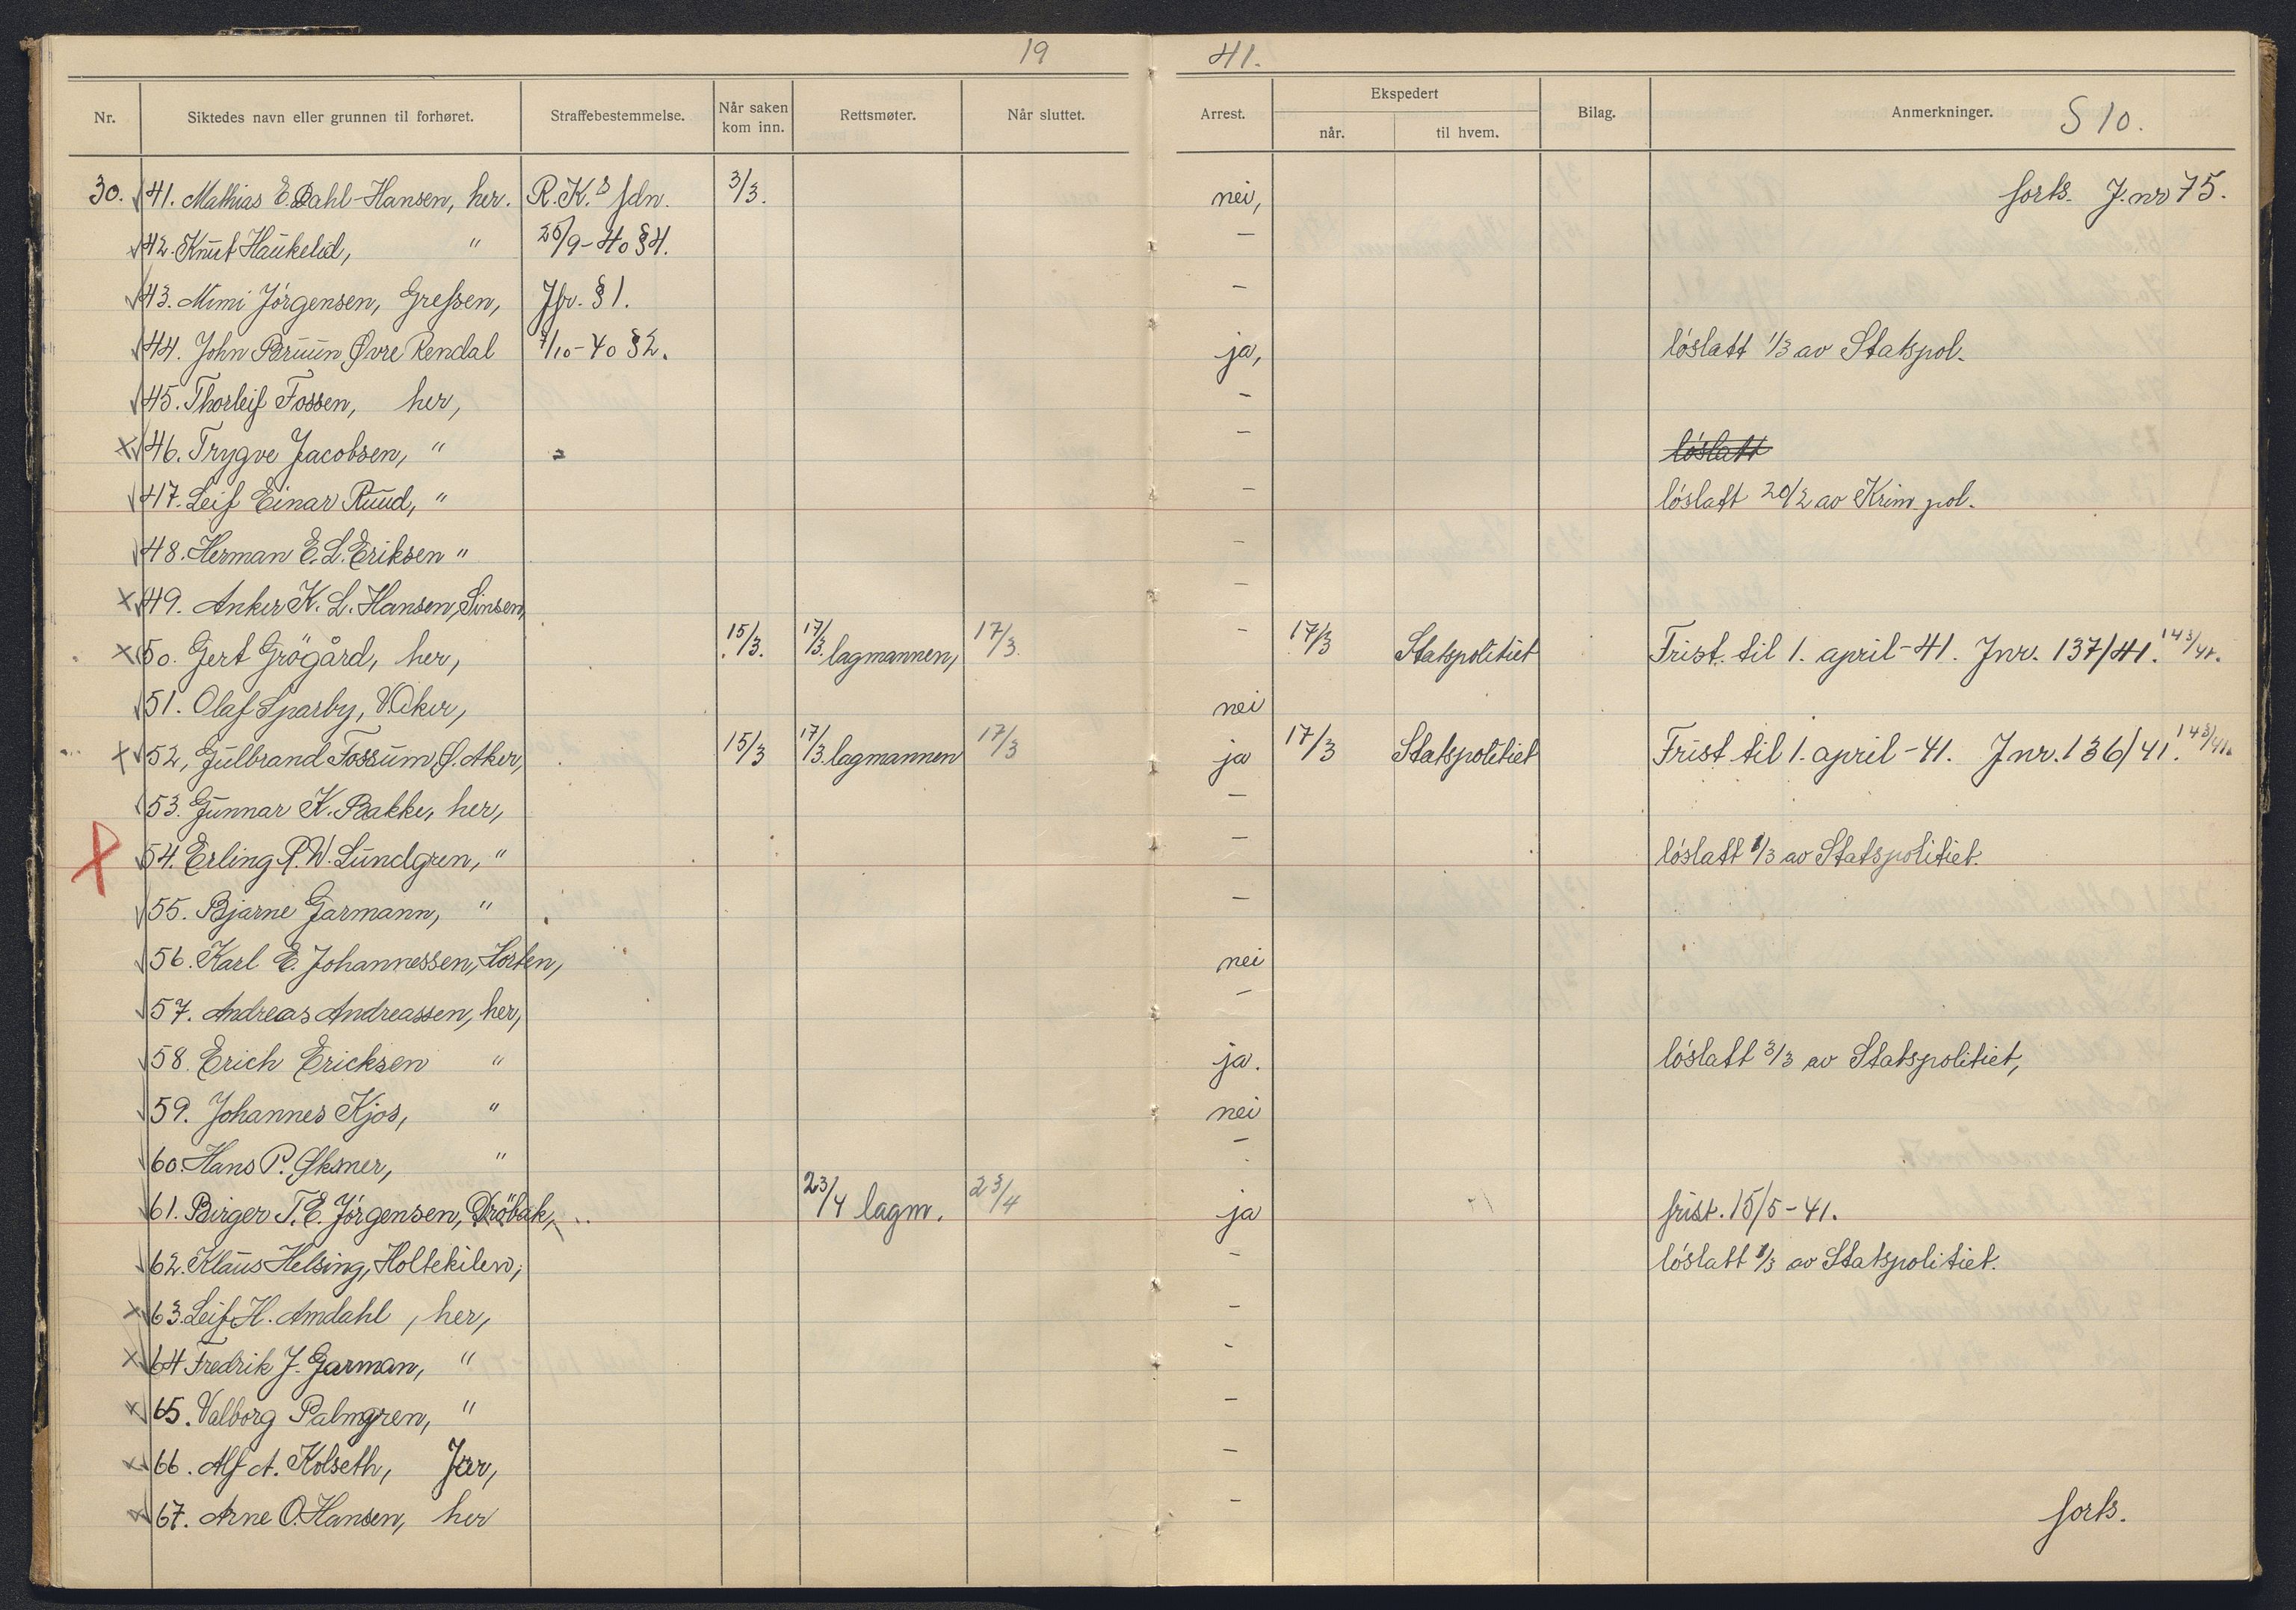 19 41.
Nr. Siktedes navn eller grunnen til forhøret. Straffebestemmelse. Når saken kom inn. Rettsmøter. Når sluttet. Arrest. Ekspedert når. til hvem. Bilag. Anmerkninger. S 10.
30. 41. Mathias E. Dahl-Hansen, her. R.K.s fdn. 3/3. nei, forts. J.nr 75.
42. Knut Haukelid, " 25/9-40 §4. —
43. Mimi Jörgensen, Grefsen, Jfr. §1. —
44. John Bruun Øvre Rendal 7/10-40 §2. ja, löslatt 1/3 av Statspol.
45. Thorleif Fossen, her, —
46. Trygve Jacobsen, " — löslatt
47. Leif Einar Ruud, " — löslatt 20/2 av Krim.pol.
48. Herman E.L. Eriksen " —
49. Anker K. L. Hansen, Sinsen, —
50. Gert Grögård, her, 15/3. 17/3. lagmannen, 17/3. — 17/3 Statspolitiet Frist til 1. april-41. Jnr. 137/41. 143/41.
51. Olaf Sparby, V. Aker, nei
52, Gulbrand Fossum, Ø. Aker, 15/3 17/3. lagmannen 17/3 ja 17/3 Statspolitiet Frist til 1. april-41. Jnr. 136/41. 143/41.
53. Gunnar K. Bakke, her, —
54. Erling R.W. Lundgren, " — löslatt 1/3 av Statspolitiet.
55. Bjarne Garmann, " —
56. Karl E. Johannessen, Horten, nei
57. Andreas Andreassen, her, —
58. Erich Ericksen " ja. löslatt 3/3 av Statspolitiet,
59. Johannes Kjos, " nei
60. Hans P. Øksner, " —
61. Birger T.E. Jörgensen, Dröbak, 23/4 lagm. 23/4 ja frist. 15/5-41.
62. Klaus Helsing, Holtekilen, — löslatt 1/3 av Statspolitiet.
63. Leif H. Amdahl, her, —
64 Fredrik J. Garman, " -
65. Valborg Palmgren, " —
66. Alf A. Kolseth, Jar, —
67. Arne O. Hansen, her — forts.